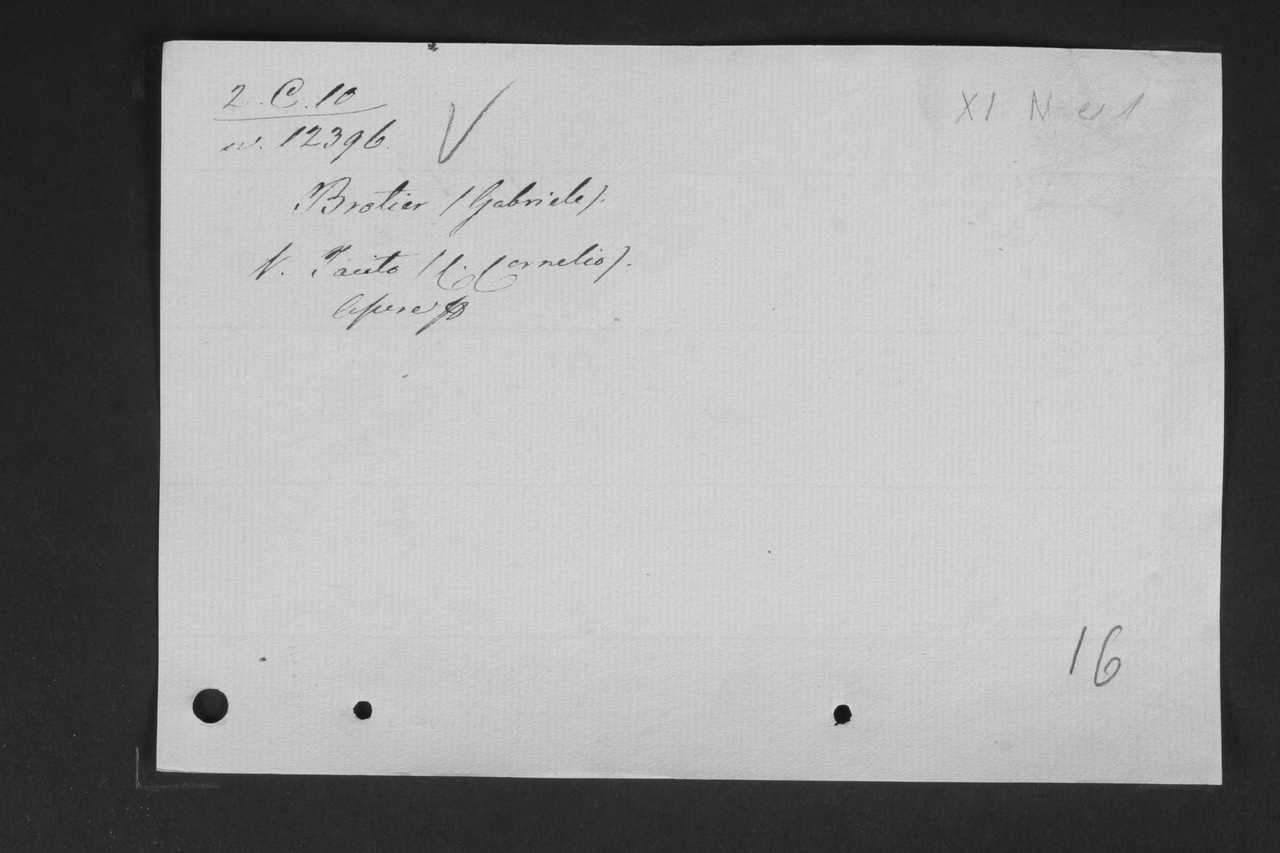 2. C. 10
n. 12396.
V
XI N er 1
Brotier (Gabriele).
V. Tacito (C. Cornelio).
Opere
16